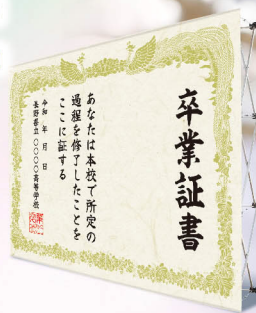 卒業証書
あなたは本校で所定の
過程を修了したことを
ここに証する
令和　年　月　日
長野県立　〇〇〇〇高等学校